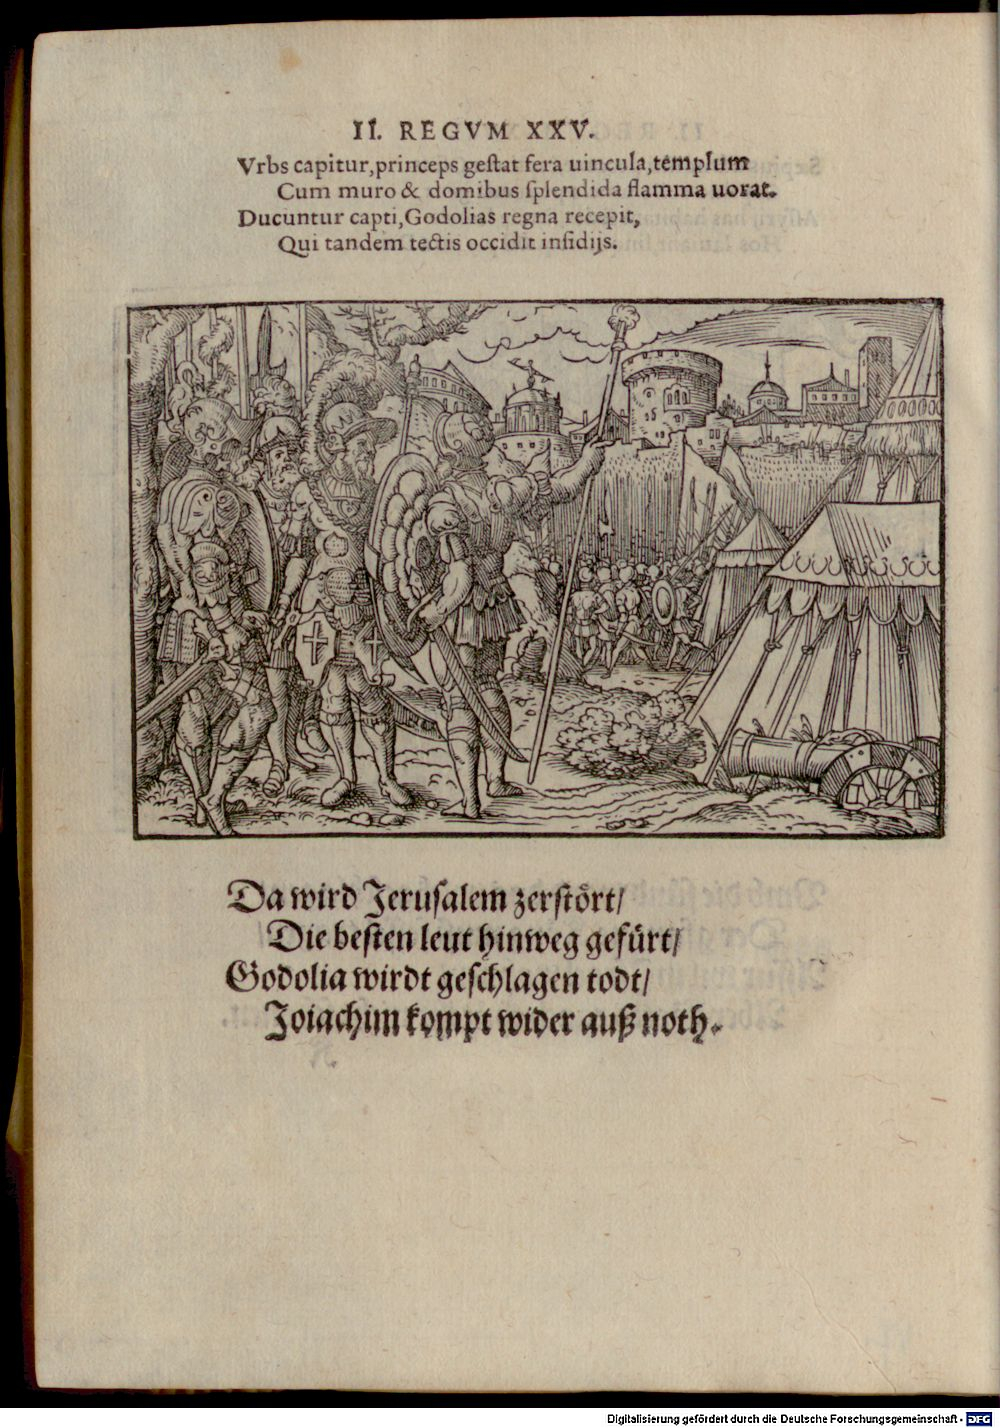 II. REGVM XXV.
Vrbs capitur,princeps geſtat fera uincula,templum
Cum muro & domibus ſplendida flamma uorat.
Ducuntur capti,Godolias regna recepit,
Qui tandem tectis occidit inſidijs.
Da wird Jeruſalem zerſtört/
Die beſten leut hinweg gefürt/
Godolia wirdt geſchlagen todt/
Joiachim kompt wider auß noth.
Digitalisierung gefördert durch die Deutsche Forschungsgemeinschaft - DFG